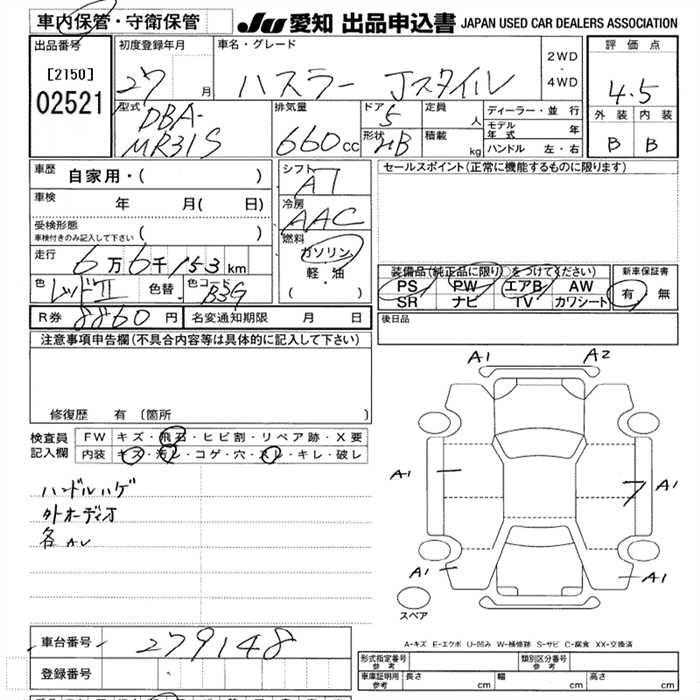 車内保管・守衛保管
JU 愛知 出品申込書 JAPAN USED CAR DEALERS ASSOCIATION
出品番号
[2150]
02521
初度登録年月
27 月
車名・グレード
ハスラー Jスタイル
2WD
・
4WD
評価点
4.5
外装 内装
B B
型式
DBA-
MR31S
排気量
660cc
ドア
5
形状
HB
定員
人
積載
kg
ディーラー・並行
モデル年式 年
ハンドル 左・右
車歴 自家用・( )
車検 年 月( 日)
受検形態
車検付きのみ記入して下さい ( )
走行 6万6千153km
色 レッドII 色替 色コード
R券 8860円 名変通知期限 月 日
シフト
AT
冷房
AAC
燃料
ガソリン
軽・油
( )
セールスポイント(正常に機能するものに限ります)
装備品(純正品に限り)○をつけてください)
PS PW エアB AW
SR ナビ TV カワシート
新車保証書
有・無
後日品
注意事項申告欄(不具合内容等は具体的に記入して下さい)
修復歴 有〔箇所 〕
検査員
記入欄
FW キズ・飛石・ヒビ割・リペア跡・X要
内装 キズ・汚レ・コゲ・穴・スレ・キレ・破レ
ハンドルハゲ
外オーディオ
A1 A2
A1 A1
A1 A1
スペア
A-キズ E-エクボ U-凹み W-補修跡 S-サビ C-腐食 XX-交換済
車台番号 279148
登録番号
形式指定番号
参考
類別区分番号
参考
車庫証明用
参考
長さ cm 幅 cm 高さ cm